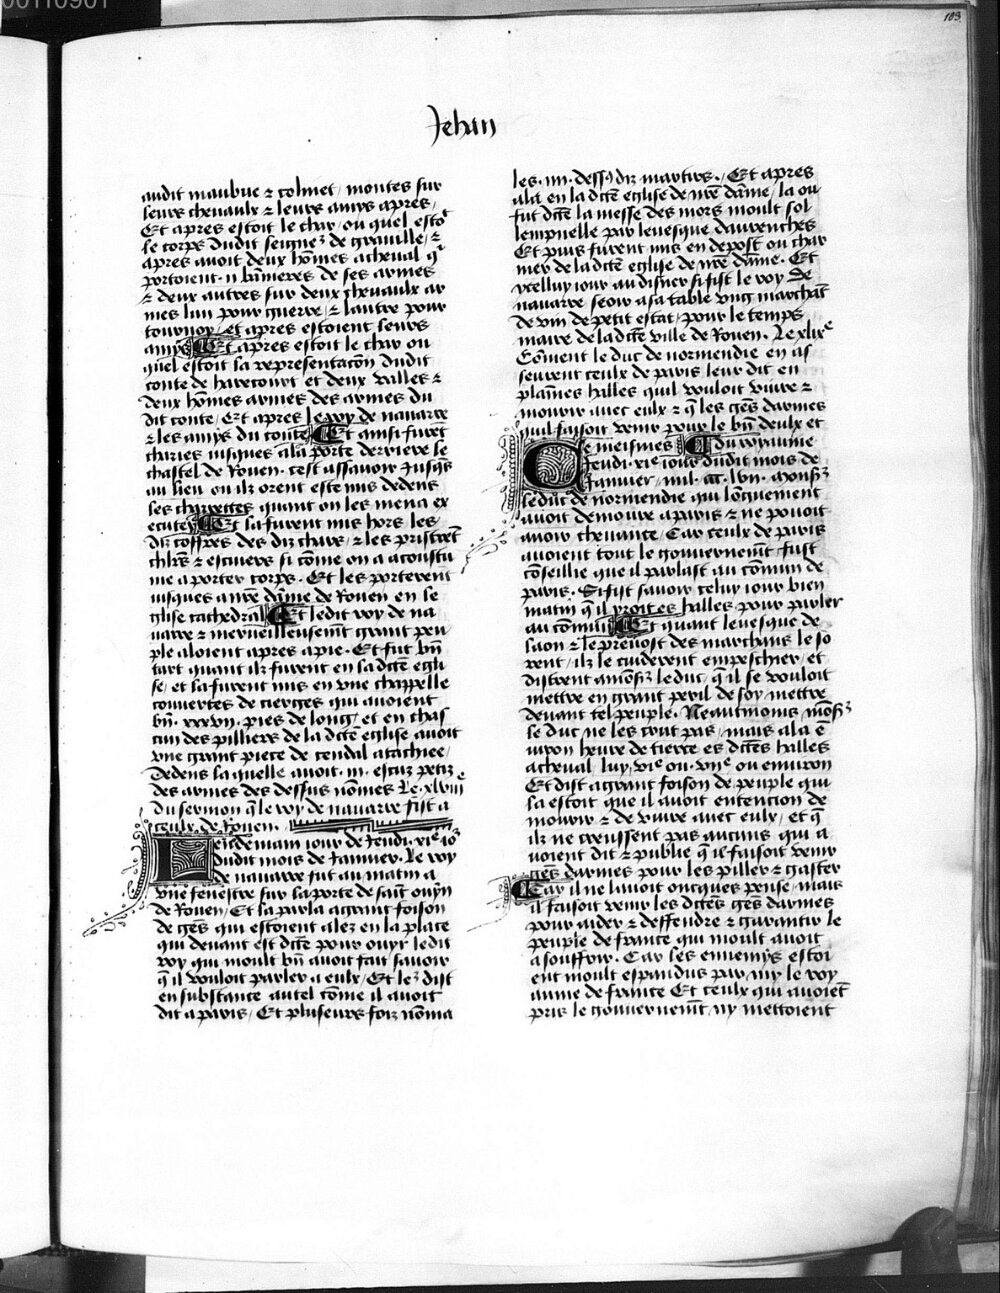 00110901
103
Jehan
audit maubue ⁊ colinet / montes sur
leurs cheuaulx ⁊ leurs amys apres /
Et apres estoit le char / ou quel estoit
le corps dudit seigneur de grauille / ⁊
apres auoit deux hom̄es acheual qui
portoient .ii. ban̄ieres de ses armes
⁊ deux autres sur deux cheuaulx ar
mes lun pour guerre / ⁊ lautre pour
tournoy / et apres estoient leurs
amys Et apres estoit le char ou
quel estoit la representac̄on dudit
conte de harecourt et deux valles ⁊
deux hom̄es armes des armes du
dit conte / Et apres le roy de nauarre
⁊ les amys du conte Et ainsi furēt
chariés iusques ala porte derriere le
chastel de Rouen / cest assauoir iusqs
au lieu ou ilz orent este mis dedens
les charrettes quant on les mena ex
ecuter Et la furent mis hors les
diz coffres des diz chars / ⁊ les pristrēt
chl̄rs ⁊ escuiers si com̄e on a acoustu
me a porter corps . Et les porterent
iusques a n̄re dame de Rouen en le
glise cathedral Et ledit roy de na
uarre ⁊ merueilleusem̄t grant peu
ple aloient apres apie . Et fut bn̄
tart quant ilz furent en la dc̄te egli
se / et la furent mis en vne chappelle
couuertes de cierges qui auoient
bn̄ . xxvii . pies de long / et en chas
cun des pilliers de la dc̄te eglise auoit
vne grant piece de cendal atachee /
Dedens laquelle auoit .iii. escuz petiz
des armes des dessus nōmes Le xlviiie
du sermon q̄ le roy de nauarre fist a
ceulx de Rouen .
Lendemain iour de Jeudi . xie io
dudit mois de Januier . Le roy
de nauarre fut au matin a
vne fenestre sur la porte de saīt ouyn
de Rouen / Et la parla agrant foison
de gēs qui estoient alez en la place
qui deuant est dc̄te pour ouyr ledit
roy qui moult bn̄ auoit fait sauoir
q̄ il vouloit parler a eulx / Et le dist
en substance autel cōme il auoit
dit a paris / Et pluseurs foiz nōma
les .iiii. dessꝰ diz martirs . Et apres
ala en la dc̄te eglise de n̄re dame / la ou
fut dc̄te la messe des mors moult sol
lempnelle par leuesque dauranches
Et puis furent mis en depost ou char
nier de la dc̄te eglise de n̄re dame . Et
ycelluy iour au disner si fist le roy de
nauarre seoir a sa table vng marchāt
de vin de petit estat / pour le temps
maire de la dc̄te ville de Rouen . Le xlixe
Cōment le duc de normendie en as
seurant ceulx de paris leur dit en
plaines halles quil vouloit viure ⁊
mourir auec eulx ⁊ q̄ les gēs darmes
quil faisoit venir pour le bn̄ deulx et
Ce meismes du royaume
Jeudi . xie iour dudit mois de
Januier / mil . ccc . lvii . mons
le duc de normendie qui longuement
auoit demoure a paris ⁊ ne pouoit
auoir cheuance / Car ceulx de paris
auoient tout le gouuernem̄t / fust
cōseillie que il parlast au cōmun de
paris . Si fist sauoir celuy iour bien
matin q̄ il yroit es halles pour parler
au cōmun Et quant leuesque de
laon ⁊ le preuost des marchans le so
rent / ilz le cuiderent empeschier / et
distrent amons le duc / q̄ il se vouloit
mettre en grant peril de soy mettre
deuant tel peuple . Neautmoins mons
le duc ne les crut pas / mais ala ē
uiron heure de tierce es dc̄tes halles
acheual luy / vie ou . viie ou enuiron
Et dist a grant foison de peuple qui
la estoit que il auoit entencion de
mourir ⁊ de viure auec eulx / et q̄
ilz ne creussent pas aucuns qui a
uoient dit ⁊ publie q̄ il faisoit venir
gēs darmes pour les piller ⁊ gaster
Car il ne lauoit oncques pense / mais
il faisoit venir les dc̄tes gēs darmes
pour aider ⁊ deffendre ⁊ garantir le
peuple de france qui moult auoit
a souffrir . Car les ennemys estoi
ent moult espandus par my le roy
aume de france Et ceulx qui auoiēt
pris le gouuernem̄t / ny mettoient